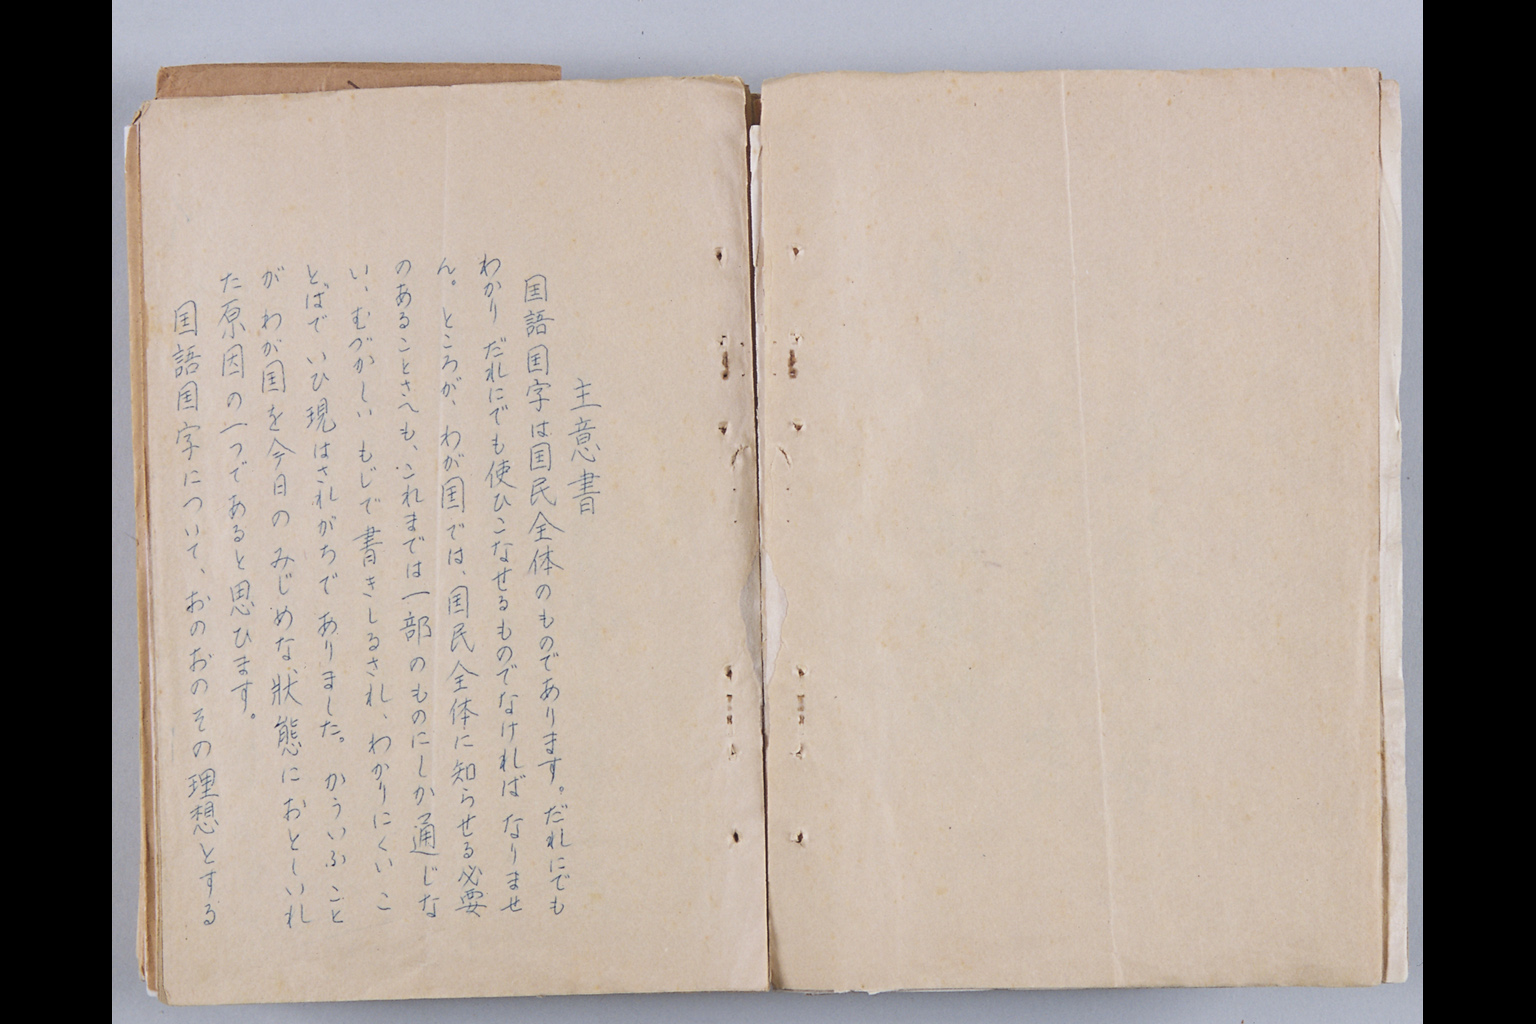 主意書
国語国字は国民全体のものであります。だれにでも
わかり だれにでも使ひこなせるものでなければ なりませ
ん。ところが、わが国では、国民全体に知らせる必要
のあることさへも、これまでは一部のものにしか通じな
い、むづかしい もじで書きしるされ、わかりにくい こ
とばで いひ現はされがちで ありました。かういふ こと
が わが国を今日の みじめな状態に おとしいれ
た原因の一つであると思ひます。
国語国字について、おのおの その理想とする